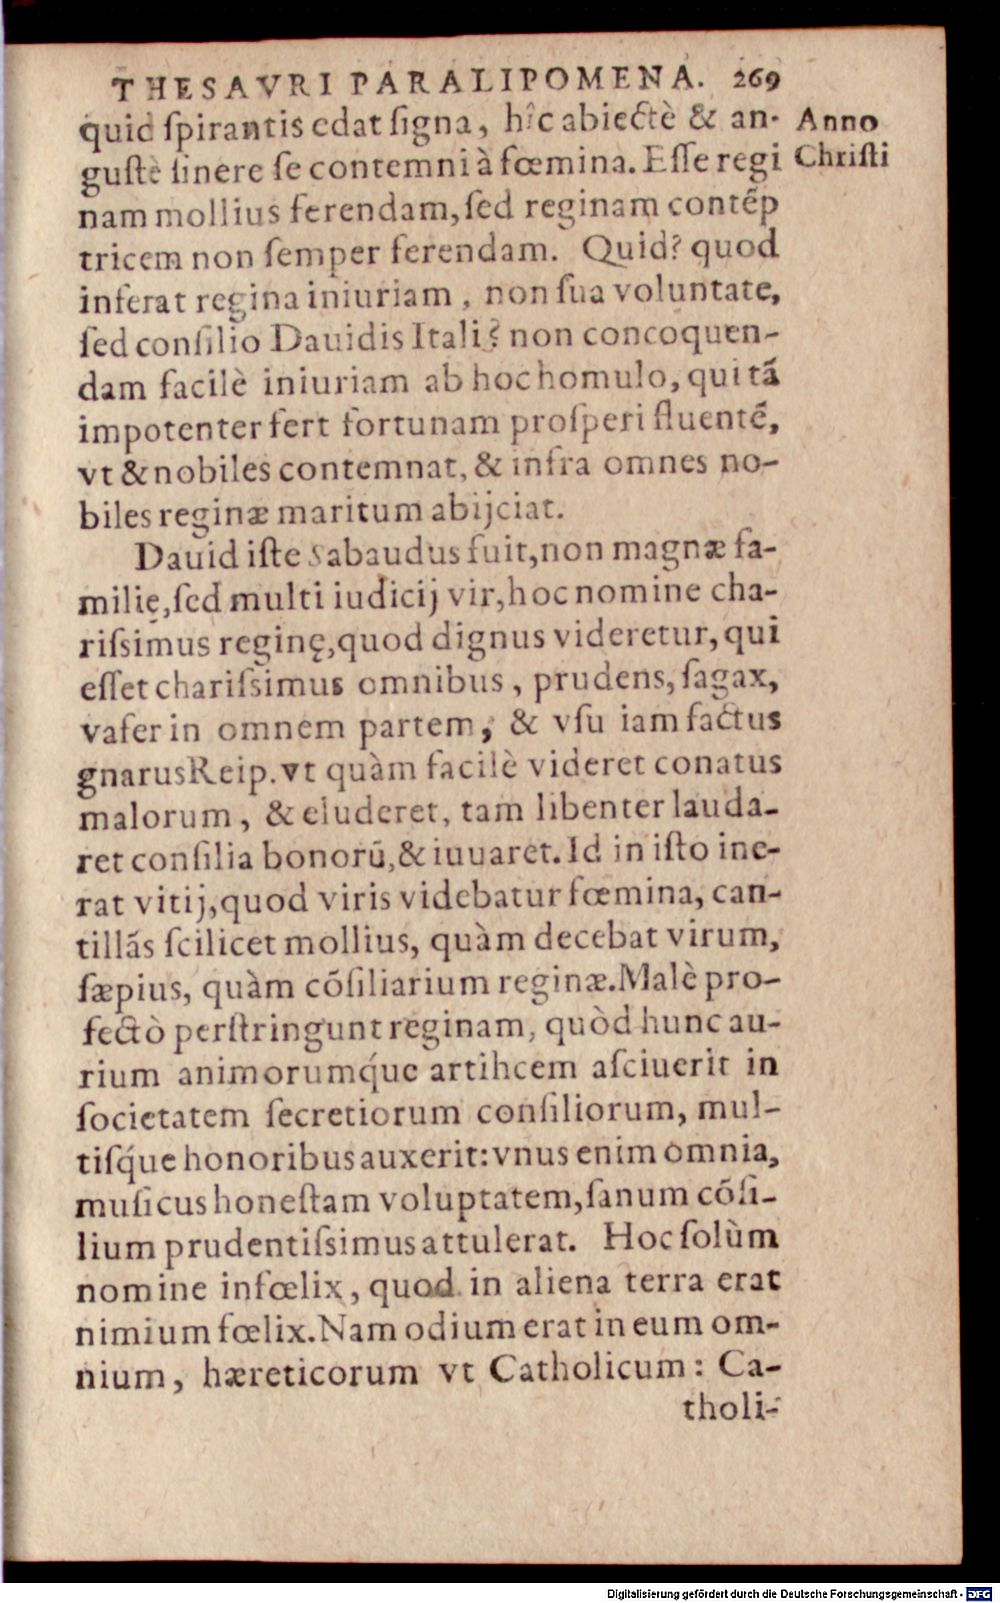 THESAVRI PARALIPOMENA. 269
quid ſpirantis edat ſigna, hîc abiectè & an-
guſtè ſinere ſe contemni à fœmina. Eſſe regi
nam mollius ferendam, ſed reginam contẽp
tricem non ſemper ferendam. Quid? quod
inferat regina iniuriam, non ſua voluntate,
ſed conſilio Dauidis Itali? non concoquen-
dam facilè iniuriam ab hoc homulo, qui tã
impotenter fert fortunam proſperi fluentẽ,
vt & nobiles contemnat, & infra omnes no-
biles reginæ maritum abijciat.
Dauid iſte Sabaudus fuit, non magnæ fa-
milię, ſed multi iudicij vir, hoc nomine cha-
riſsimus reginę, quod dignus videretur, qui
eſſet chariſsimus omnibus, prudens, ſagax,
vafer in omnem partem, & vſu iam factus
gnarus Reip. vt quàm facilè videret conatus
malorum, & eluderet, tam libenter lauda-
ret conſilia bonorũ, & iuuaret. Id in iſto ine-
rat vitij, quod viris videbatur fœmina, can-
tillãs ſcilicet mollius, quàm decebat virum,
ſæpius, quàm cõſiliarium reginæ. Malè pro-
fectò perſtringunt reginam, quòd hunc au-
rium animorumq́ue artificem aſciuerit in
societatem ſecretiorum conſiliorum, mul-
tiſq́ue honoribus auxerit: vnus enim omnia,
muſicus honeſtam voluptatem, ſanum cõſi-
lium prudentiſsimus attulerat. Hoc ſolùm
nomine infœlix, quod in aliena terra erat
nimium fœlix. Nam odium erat in eum om-
nium, hæreticorum vt Catholicum: Ca-
tholi-
Anno
Chriſti
Digitalisierung gefördert durch die Deutsche Forschungsgemeinschaft - DFG